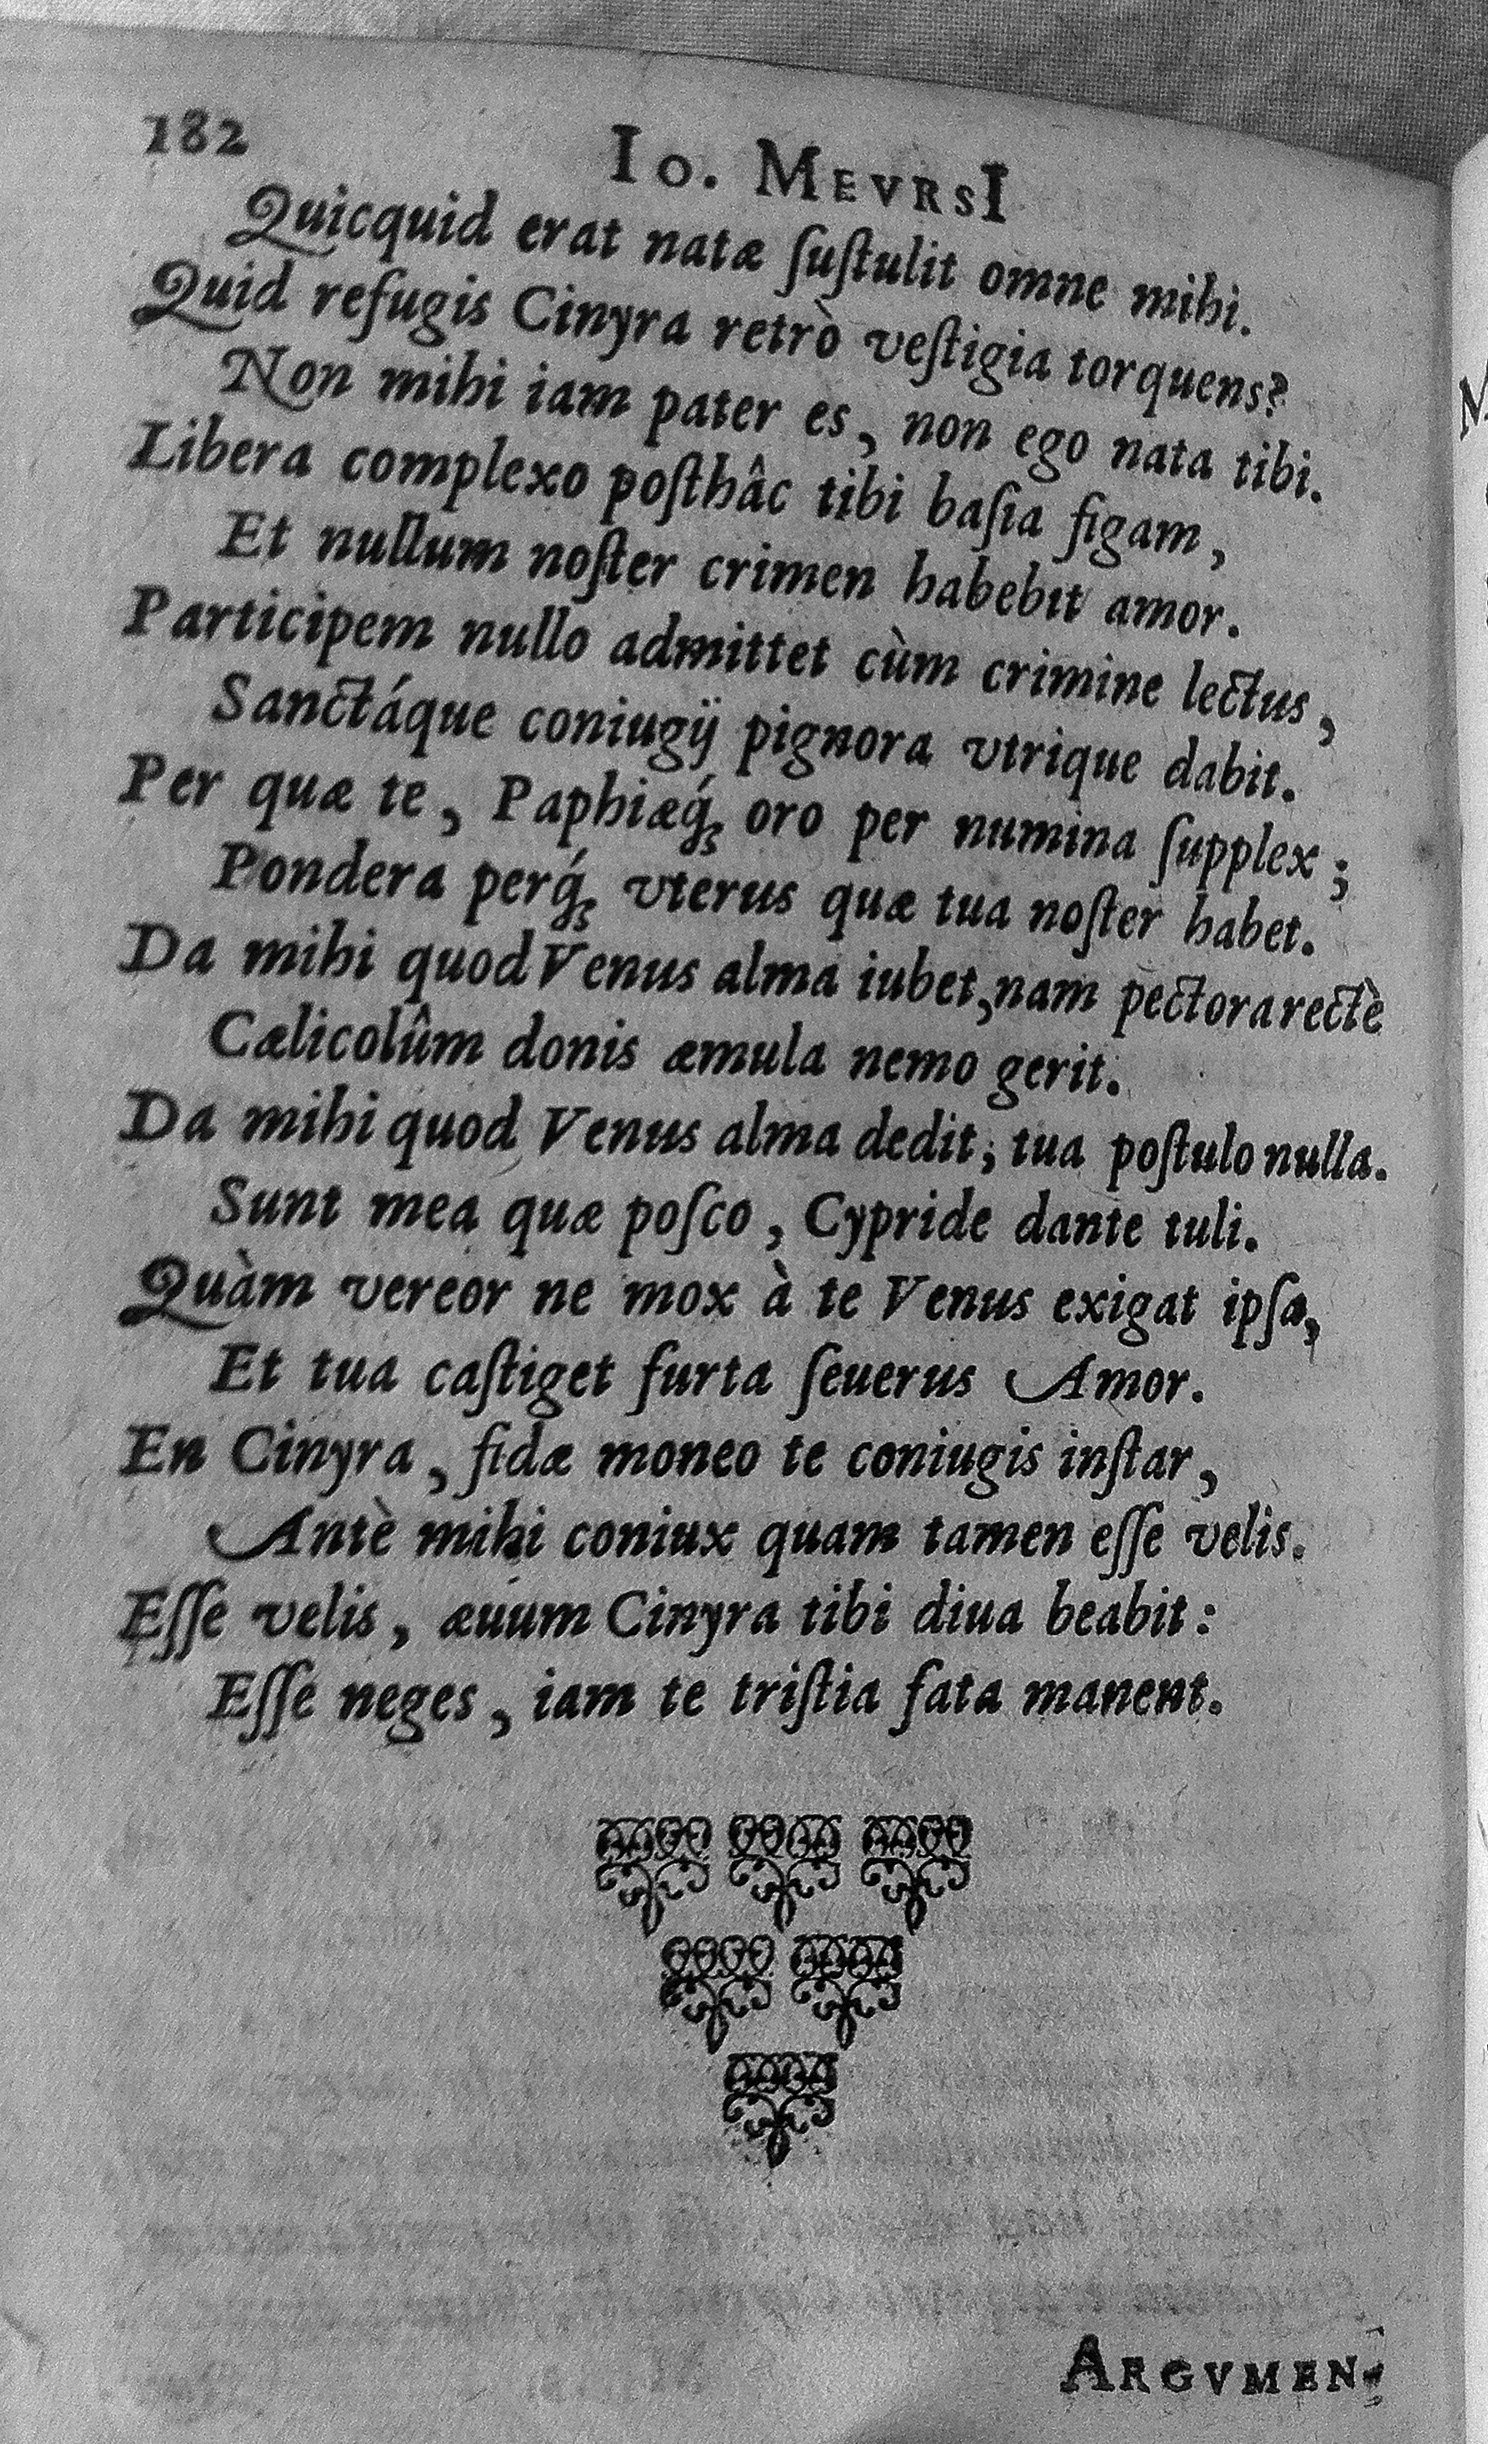 182
Io. MEVRSI
Quicquid erat natæ ſuſtulit omne mihi.
Quid refugis Cinyra retrò veſtigia torquens?
Non mihi iam pater es, non ego nata tibi.
Libera complexo poſthâc tibi baſia figam,
Et nullum noſter crimen habebit amor.
Participem nullo admittet cùm crimine lectus,
Sanctáque coniugij pignora vtrique dabit.
Per quæ te, Paphiæq́; oro per numina ſupplex;
Pondera perq́; vterus quæ tua noſter habet.
Da mihi quod Venus alma iubet, nam pectora rectè
Cælicolûm donis æmula nemo gerit.
Da mihi quod Venus alma dedit; tua poſtulo nulla.
Sunt mea quæ poſco, Cypride dante tuli.
Quàm vereor ne mox à te Venus exigat ipſa,
Et tua caſtiget furta ſeuerus Amor.
En Cinyra, fidæ moneo te coniugis inſtar,
Antè mihi coniux quam tamen eſſe velis.
Eſſe velis, æuum Cinyra tibi diua beabit:
Eſſe neges, iam te triſtia fata manent.
ARGVMEN-